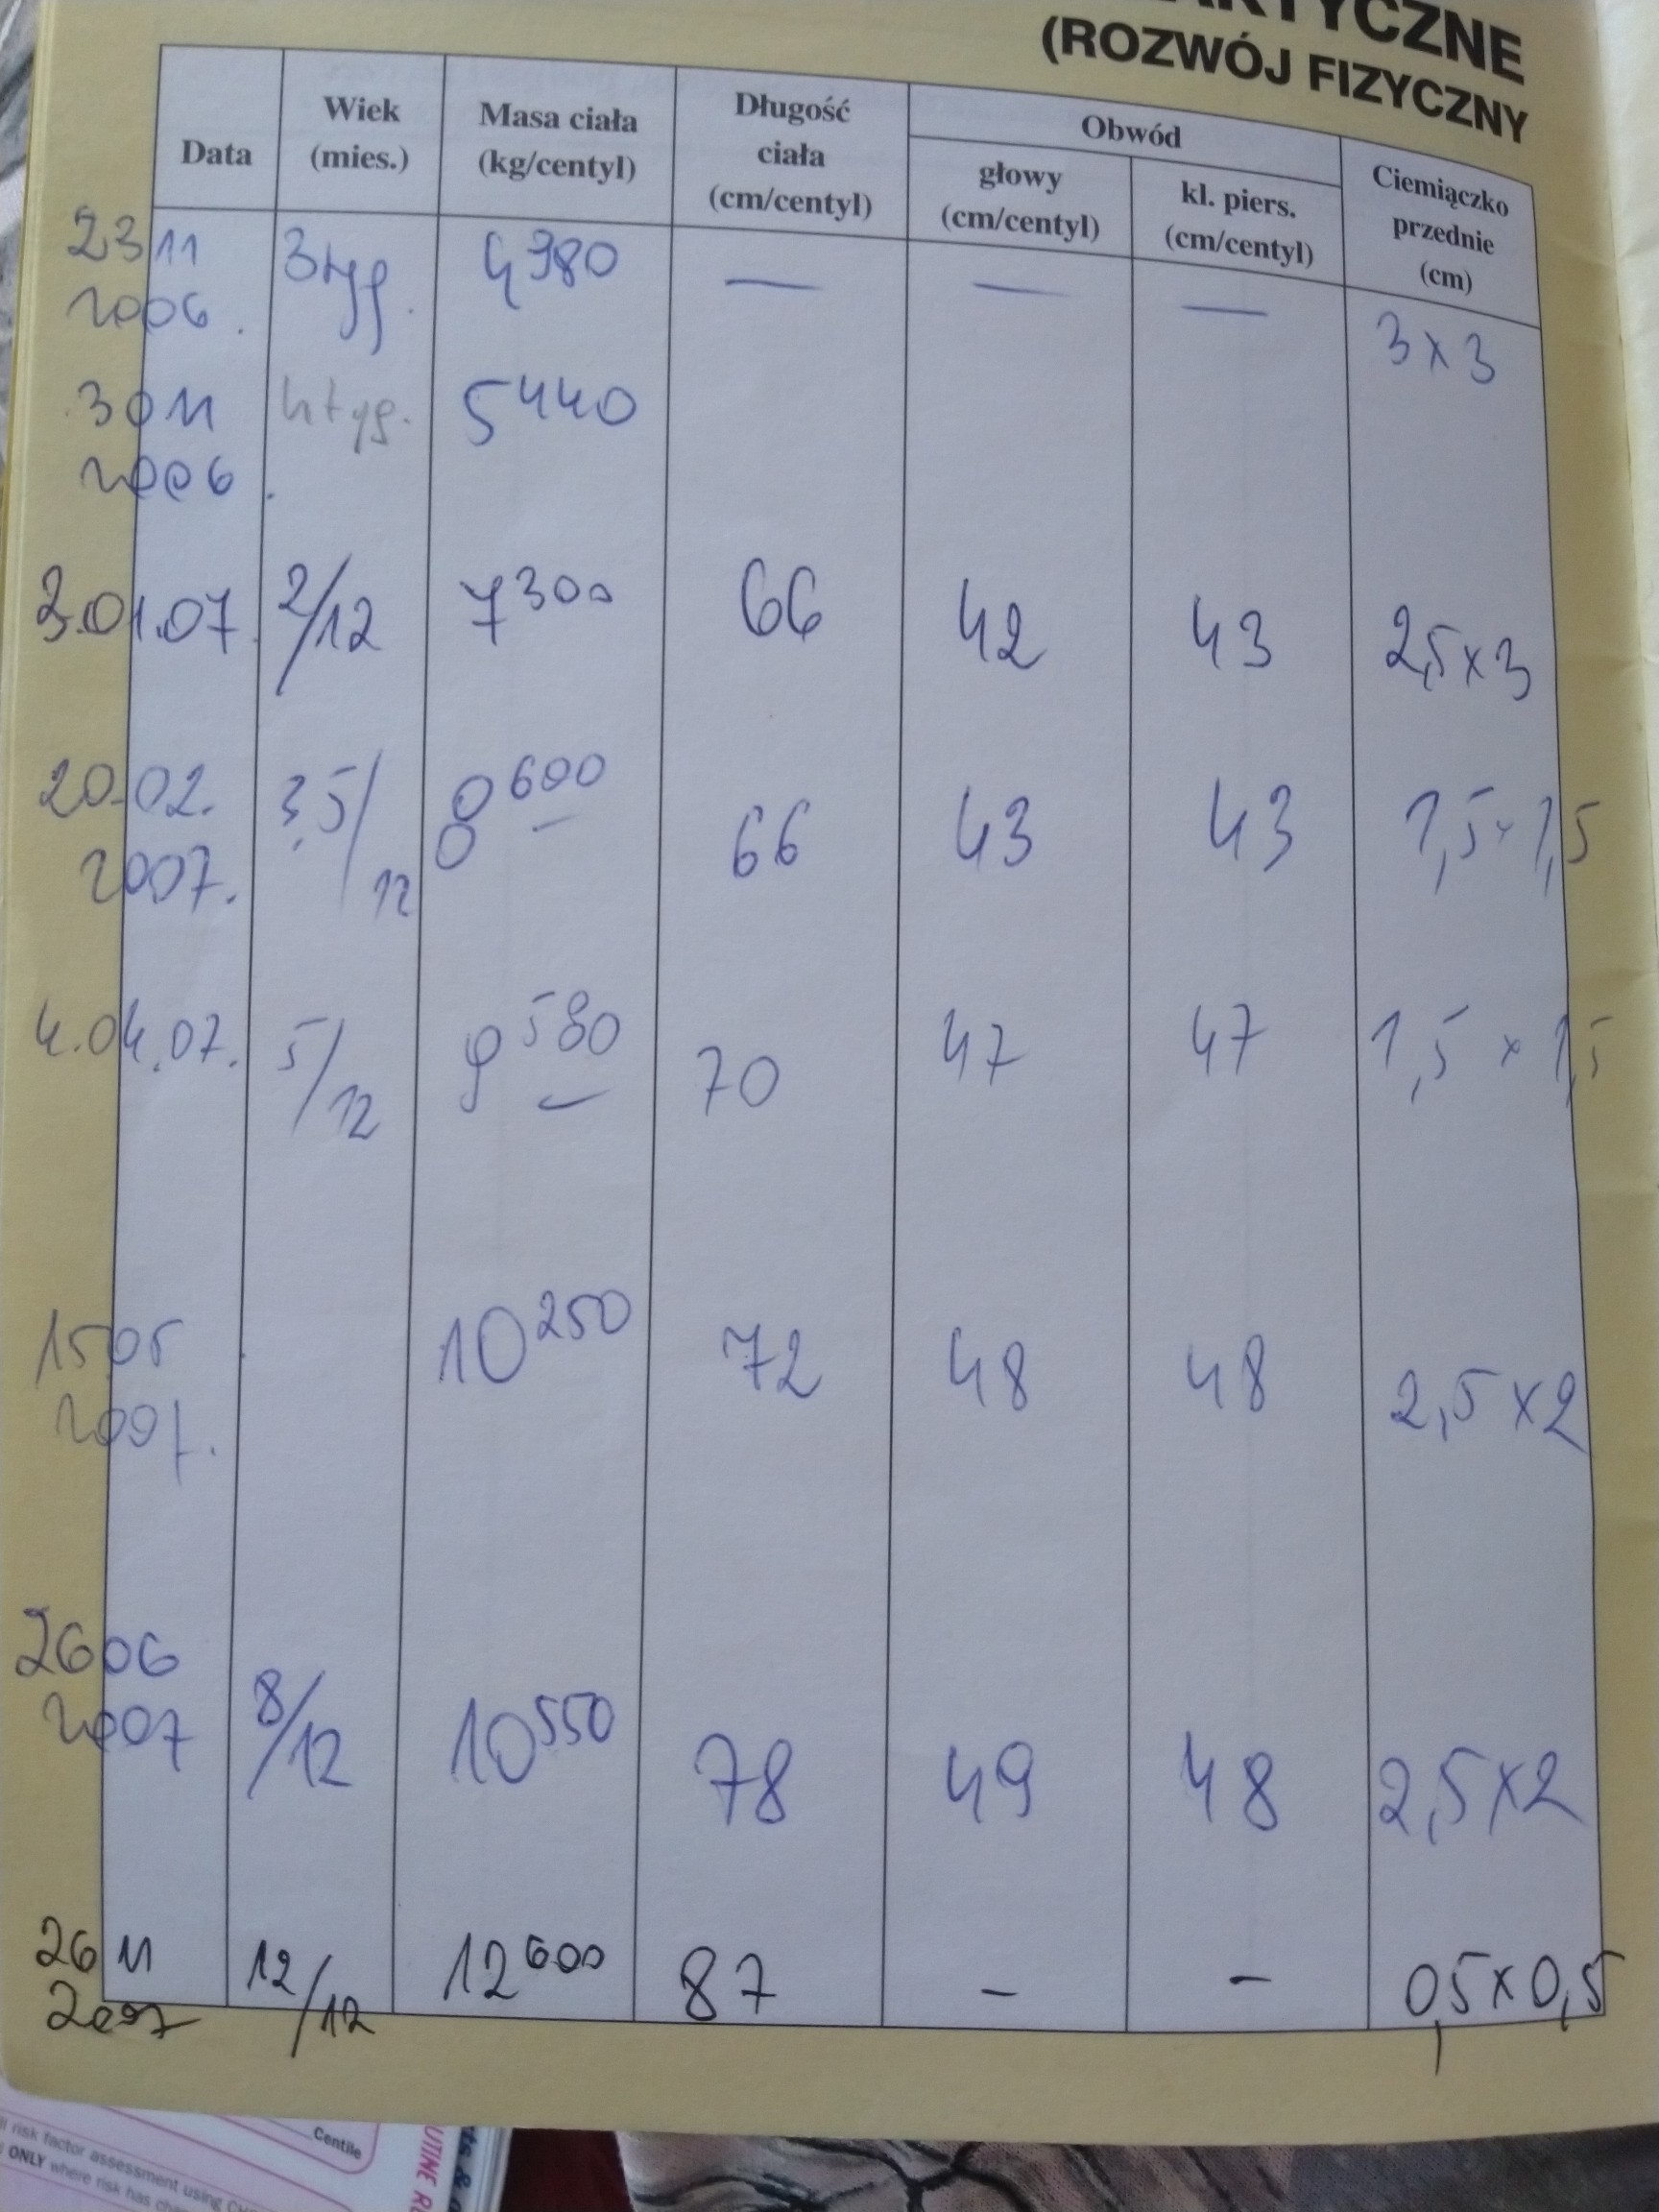 (ROZWÓJ FIZYCZNY
Data
Wiek
(mies.)
Masa ciała
(kg/centyl)
Długość
ciała
(cm/centyl)
Obwód
głowy
(cm/centyl)
kl. piers.
(cm/centyl)
Ciemiączko
przednie
(cm)
23 11 3tyg. 4980 — — — 3x3
2006.
30 11 4tyg. 5440
2006.
3.01.07. 2/12 7300 66 42 43 2,5x3
20.02. 3,5/12 8600 66 43 43 1,5x1,5
2007.
4.04.07. 5/12 9580 70 47 47 1,5x1,5
15 05 10250 72 48 48 2,5x2
2007.
26 06
2007 8/12 10550 78 49 48 2,5x2
26 11 12/12 12600 87 – – 0,5x0,5
2007
Centile
risk factor assessment using
ONLY where risk has